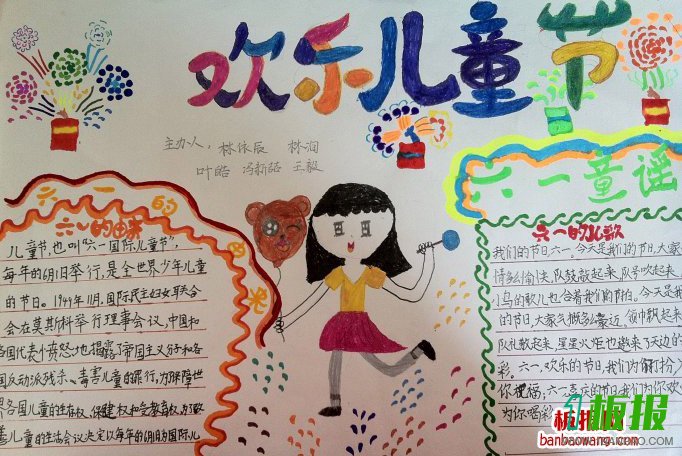 欢乐儿童节
主办人：林依辰 林润
叶皓 冯新皓 王毅
六一童谣
六一的由来
儿童节，也叫"六一国际儿童节"，
每年的6月1日举行，是全世界少年儿童
的节日。1949年11月，国际民主妇女联合
会在莫斯科举行理事会议，中国和
各国代表十愤怒地揭露了帝国主义分子和各
国反动派残杀、毒害儿童的罪行，为保障世
界各国儿童的生存权、保健权和受教育权，为了改
善儿童的生活会议决定以每年的6月1日为国际儿
六一的儿歌
我们的节日六一。今天是我们的节日，大家
队鼓敲起来，队号吹起来，
小鸟的歌儿也合着我们的节拍。今天是我
的节日，大家
队礼敬起来，星星火炬也
彩。六一，欢乐的节日，我们为你打扮，
你祝福；六一
为你喝彩
板报网
banbaowang.com
板报